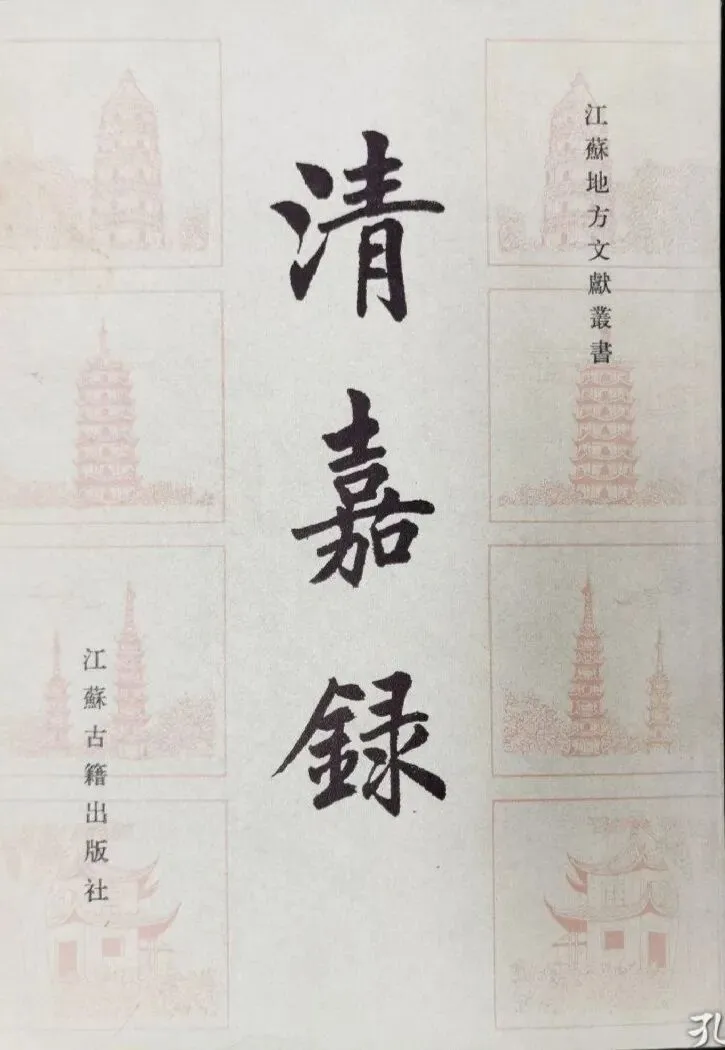 江蘇地方文獻叢書
清嘉録
江蘇古籍出版社
孔